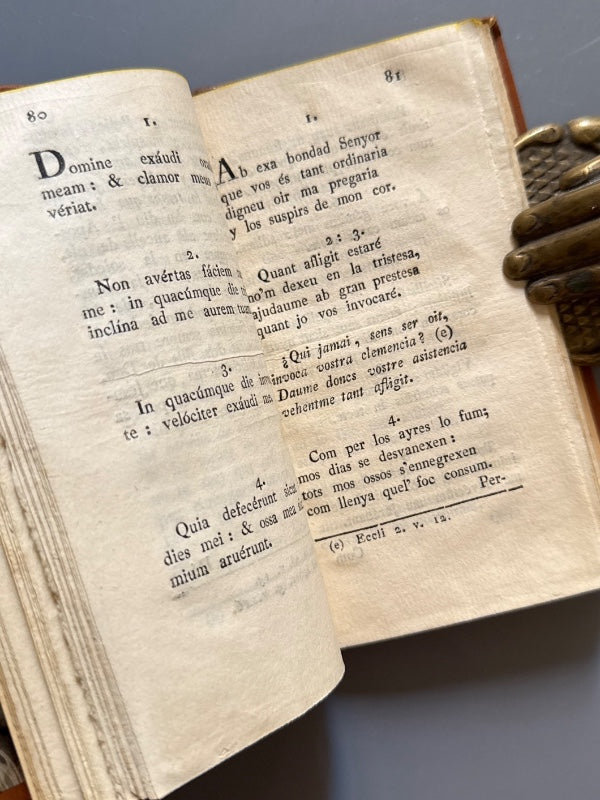 80
1.
Domine exáudi
meam : & clamor meus
vériat.
2.
Non avértas fáciem
me : in quacúmque die
inclína ad me aurem tuam
3.
In quacúmque die
te : velóciter exáudi me.
4.
Quia defecérunt sicut
dies mei : & ossa mea
mium aruérunt.
81
1.
Ab exa bondad Senyor
que vos és tant ordinaria
digneu oir ma pregaria
y los suspirs de mon cor.
2 : 3.
Quant afligit estaré
no'm dexeu en la tristesa,
ajudaume ab gran prestesa
quant jo vos invocaré.
¿Qui jamai, sens ser oit,
invocá vostra clemencia? (e)
Daume doncs vostre asistencia
vehentme tant afligit.
4.
Com per los ayres lo fum;
mos dias se desvanexen :
tots mos ossos s'ennegrexen
com llenya quel' foc consum.
Per-
(e) Eccli 2. v. 12.